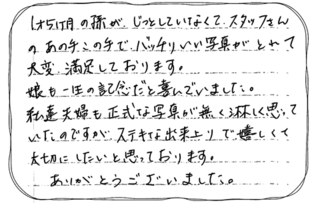 1才5ヶ月の孫が、じっとしていなくて、スタッフさん
のあの手この手で、バッチリいい写真がとれて
大変、満足しております。
娘も一生の記念だと喜んでいました。
私達夫婦も正式な写真が無く淋しく思って
いたのですが、ステキな出来上りで嬉しくて
大切にしたいと思っております。
ありがとうございました。